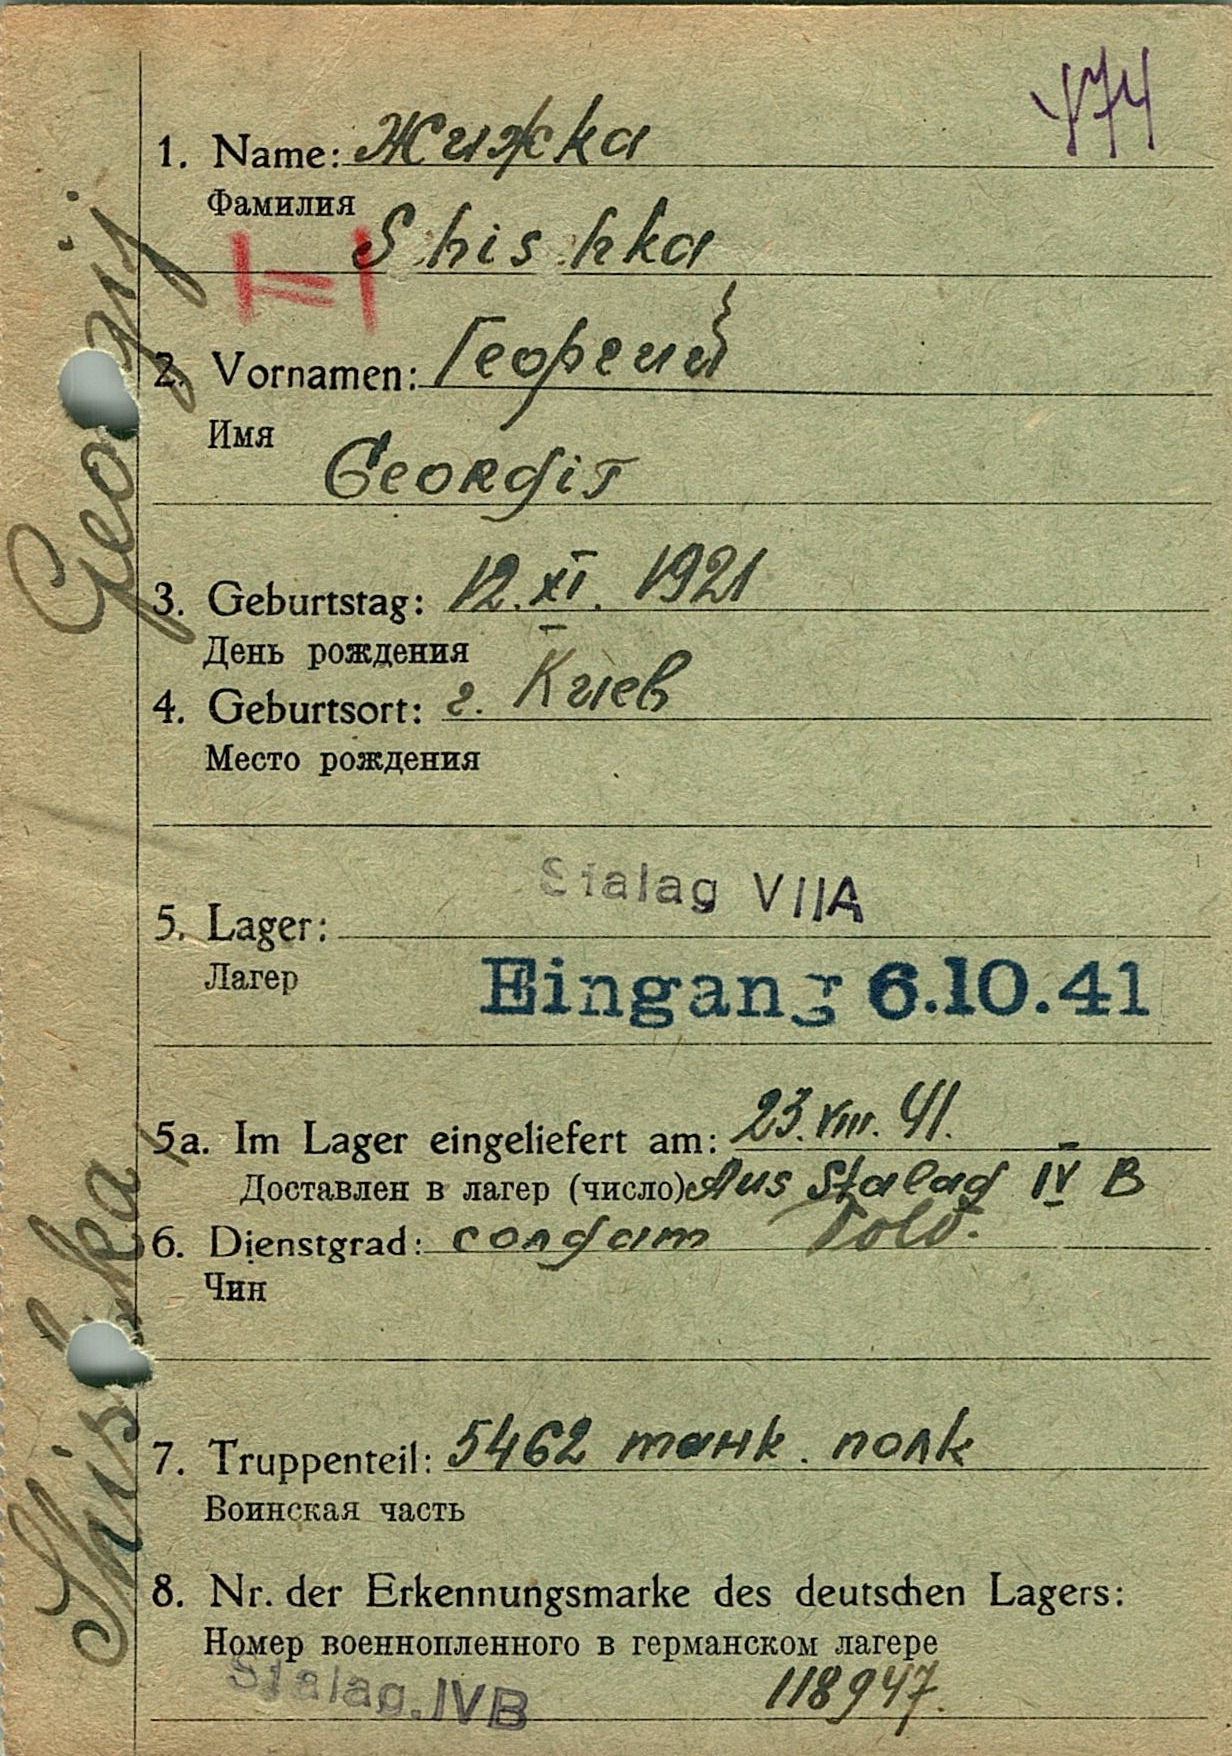 474
1. Name: Жижка
Фамилия
Shishka
2. Vornamen: Георгий
Имя
Georgij
3. Geburtstag: 12. XI. 1921
День рождения
4. Geburtsort: г. Киев
Место рождения
Stalag VIIA
5. Lager:
Лагер
Eingang 6.10.41
5a. Im Lager eingeliefert am: 23. VIII. 41.
Доставлен в лагер (число) Aus Stalag IV B
6. Dienstgrad: солдат Sold.
Чин
7. Truppenteil: 5462 танк. полк
Воинская часть
8. Nr. der Erkennungsmarke des deutschen Lagers:
Номер военнопленного в германском лагере
Stalag.IVB 118947.
Shishka Georgij